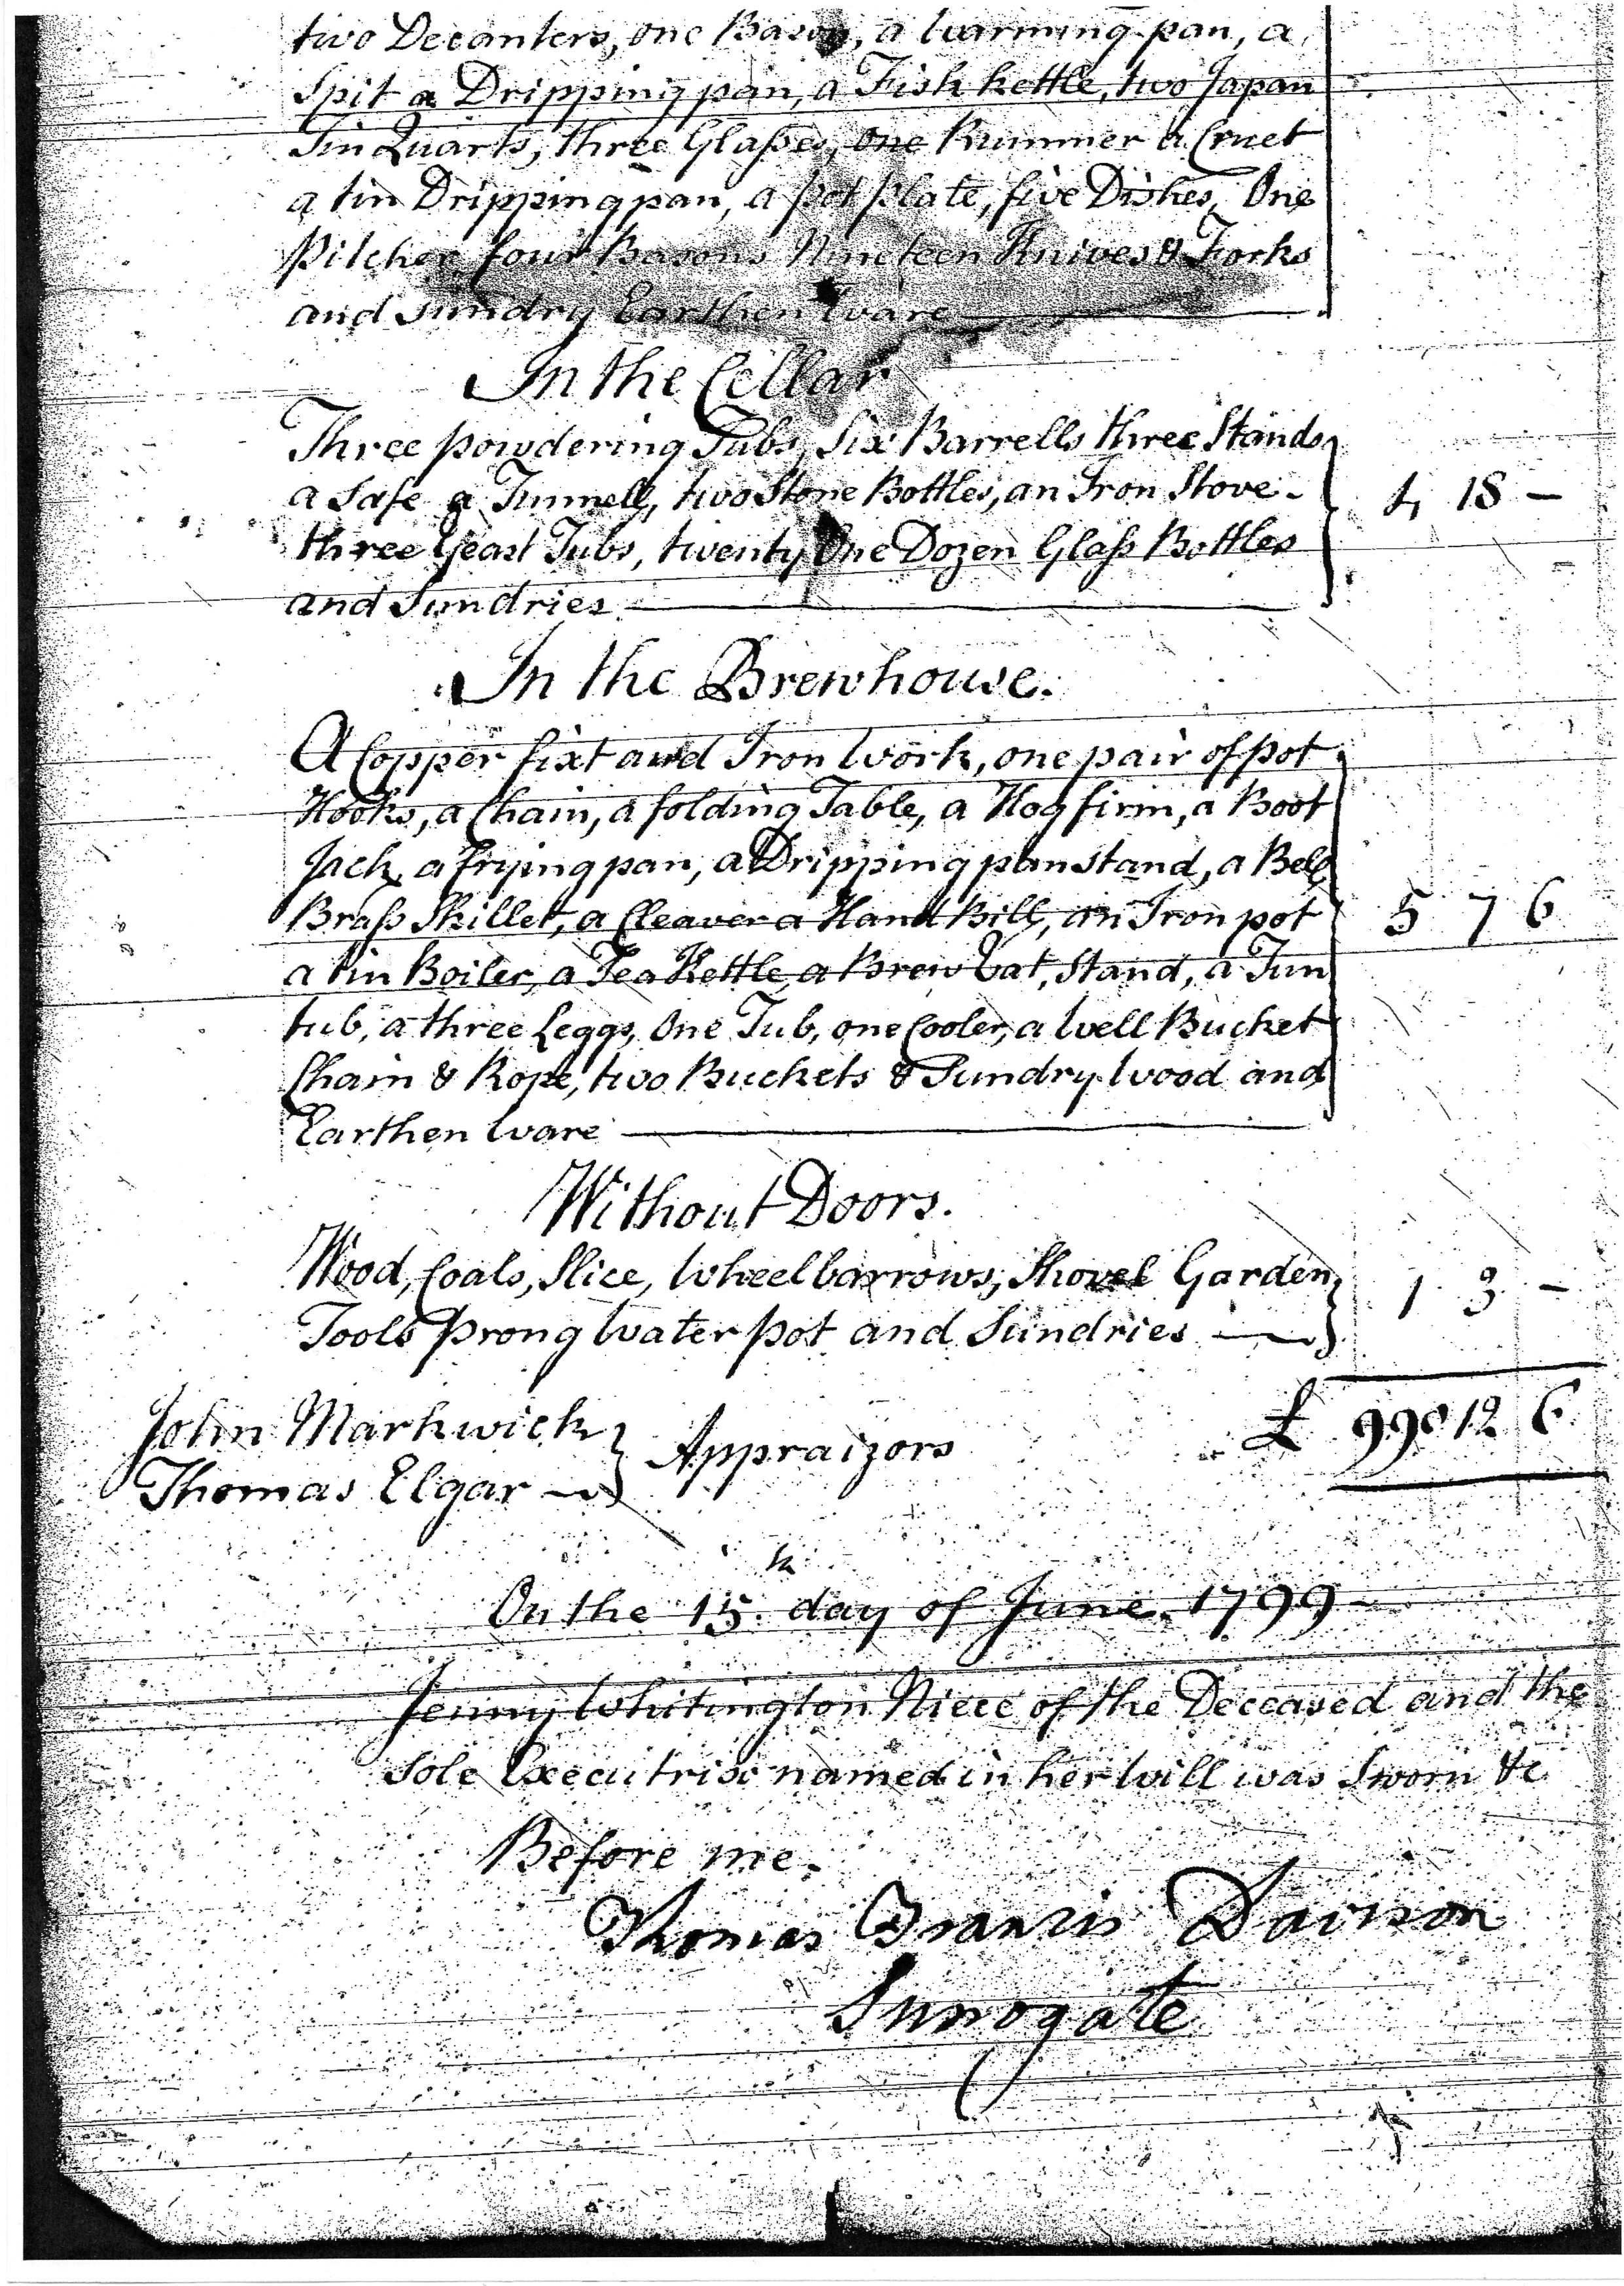 two Decanters, one Bason, a Warming pan, a
Spit a Dripping pan, a Fish kettle, two Japan
Tin Quarts, three Glaſses, One Rummer a Cruet
a tin Dripping pan, a pot plate, five Dishes, One
Pitcher four Basons Nineteen Knives & Forks
and sundry Earthen Ware
In the Cellar
Three powdering Tubs, Six Barrells three Stands
a Safe a Tunnell, two Stone Bottles, an Iron Stove
three Yeast Tubs, twenty One Dozen Glaſs Bottles
and Sundries
4 18 –
In the Brewhouse.
A Copper fixt and Iron Work, one pair of pot
Hooks, a Chain, a folding Table, a Hog firm, a Boot
Jack, a frying pan, a Dripping pan stand, a Bell
Braſs Skillet, a Cleaver a Hand Bill, an Iron pot
a tin Boiler, a Tea Kettle, a Brew Vat, Stand, a Tun
tub, a three Leggs, One Tub, one Cooler, a Well Bucket
Chain & Rope, two Buckets & Sundry Wood and
Earthen Ware
5 7 6
Without Doors.
Wood, Coals, Slice, Wheelbarrows, Shovel Garden
Tools prong Water pot and Sundries
1 3 –
John Markwick
Thomas Elgar
Appraizors
£ 99 12 6
On the 15th day of June 1799
Jenny Whitington Niece of the Deceased and the
Sole Executrix named in her Will was Sworn &c
Before me.
Thomas Francis Davison
Surrogate